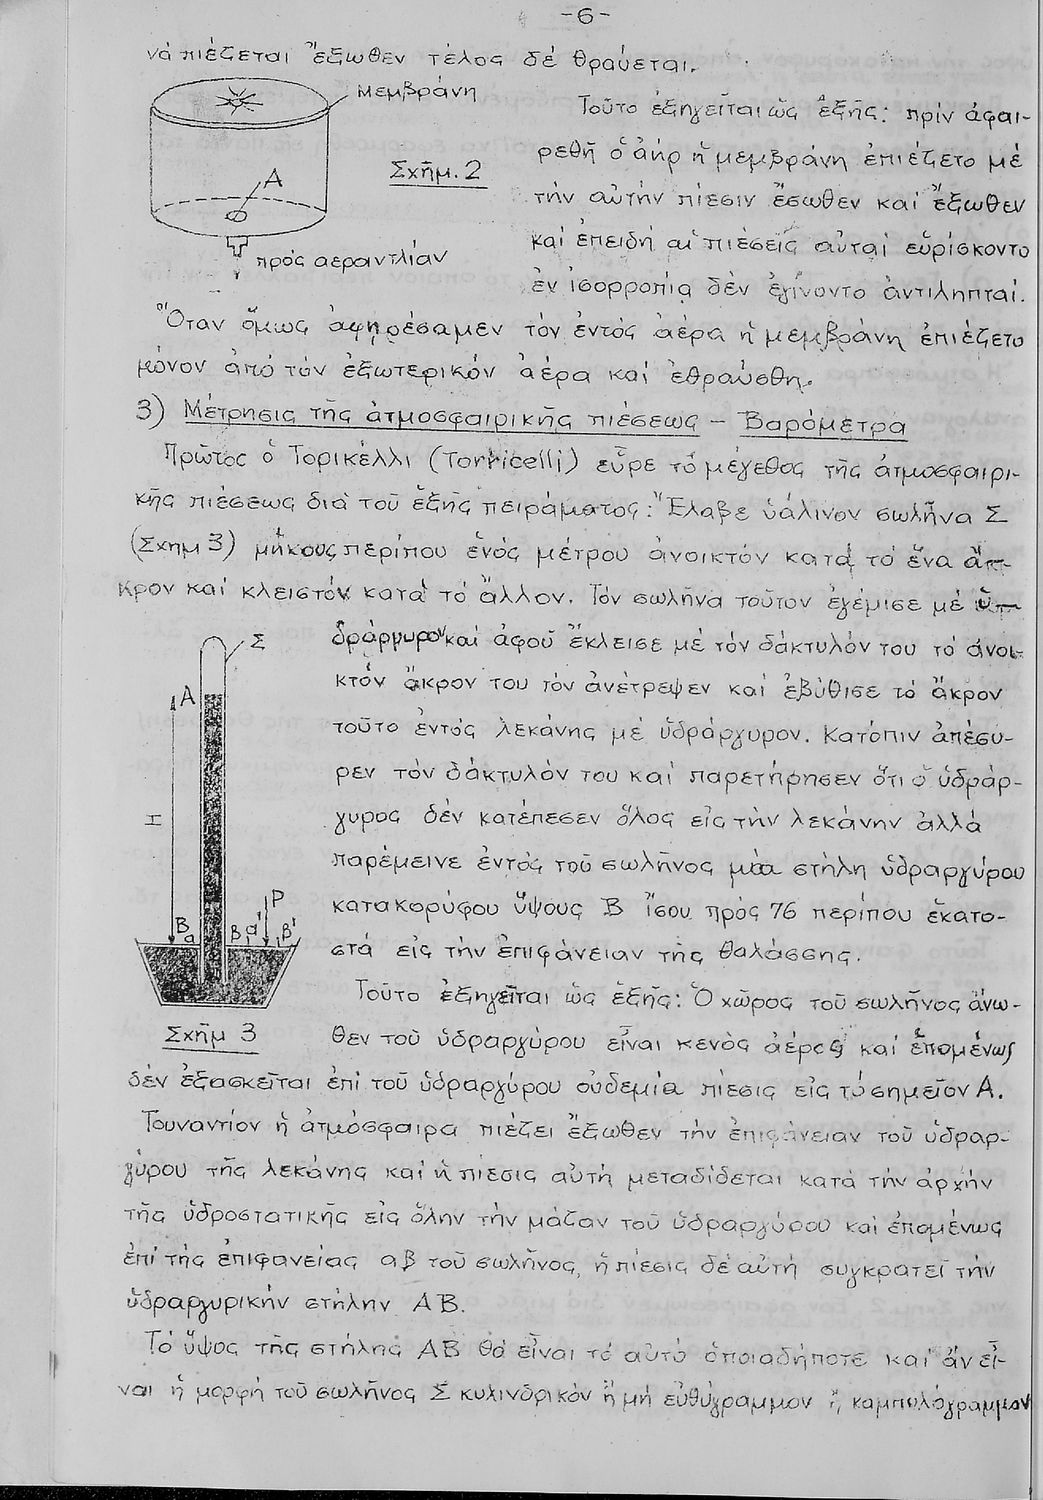 -6-
νά πιέζεται ἔξωθεν τέλος δέ θραύεται.
μεμβράνη
Σχῆμ. 2
Α
πρός αεραντλίαν
Τοῦτο ἐξηγεῖται ὡς ἑξῆς: πρίν ἀφαι-
ρεθῆ ὁ ἀήρ ἡ μεμβράνη ἐπιέζετο μέ
τήν αὐτήν πίεσιν ἔσωθεν καί ἔξωθεν
καί ἐπειδή αἱ πιέσεις αὐταί εὑρίσκοντο
ἐν ἰσορροπίᾳ δέν ἐγίνοντο ἀντιληπταί.
Ὅταν ὅμως ἀφῃρέσαμεν τόν ἐντός ἀέρα ἡ μεμβράνη ἐπιέζετο
μόνον ἀπό τόν ἐξωτερικόν ἀέρα καί ἐθραύσθη.
3) Μέτρησις τῆς ἀτμοσφαιρικῆς πιέσεως - Βαρόμετρα
Πρῶτος ὁ Τορικέλλι (Torricelli) εὗρε τό μέγεθος τῆς ἀτμοσφαιρι-
κῆς πιέσεως διά τοῦ ἑξῆς πειράματος: Ἔλαβε ὑάλινον σωλῆνα Σ
(Σχημ 3) μήκους περίπου ἑνός μέτρου ἀνοικτόν κατά τό ἕνα ἄ-
κρον καί κλειστόν κατά τό ἄλλον. Τόν σωλῆνα τοῦτον ἐγέμισε μέ ὑ-
δράργυρον καί ἀφοῦ ἔκλεισε μέ τόν δάκτυλόν του τό ἀνοι-
κτόν ἄκρον του τόν ἀνέτρεψεν καί ἐβύθισε τό ἄκρον
τοῦτο ἐντός λεκάνης μέ ὑδράργυρον. Κατόπιν ἀπέσυ-
ρεν τόν δάκτυλόν του καί παρετήρησεν ὅτι ὁ ὑδράρ-
γυρος δέν κατέπεσεν ὅλος εἰς τήν λεκάνην ἀλλά
παρέμεινε ἐντός τοῦ σωλῆνος μία στήλη ὑδραργύρου
κατακορύφου ὕψους Β ἴσου πρός 76 περίπου ἑκατο-
στά εἰς τήν ἐπιφάνειαν τῆς θαλάσσης.
Σ
Α
Η
Β
α
β
α'
Ρ
β'
Σχῆμ 3
Τοῦτο ἐξηγεῖται ὡς ἑξῆς: Ὁ χῶρος τοῦ σωλῆνος ἄνω-
θεν τοῦ ὑδραργύρου εἶναι κενὸς ἀέρος καί ἑπομένως
δέν ἐξασκεῖται ἐπί τοῦ ὑδραργύρου οὐδεμία πίεσις εἰς τό σημεῖον Α.
Τουναντίον ἡ ἀτμόσφαιρα πιέζει ἔξωθεν τήν ἐπιφάνειαν τοῦ ὑδραρ-
γύρου τῆς λεκάνης καί ἡ πίεσις αὐτή μεταδίδεται κατά τήν ἀρχήν
τῆς ὑδροστατικῆς εἰς ὅλην τήν μάζαν τοῦ ὑδραργύρου καί ἐπομένως
ἐπί τῆς ἐπιφανείας αβ τοῦ σωλῆνος, ἡ πίεσις δέ αὐτή συγκρατεῖ τήν
ὑδραργυρικήν στήλην ΑΒ.
Τό ὕψος τῆς στήλης ΑΒ θά εἶναι τό αὐτό ὁποιαδήποτε καί ἄν εἶ-
ναι ἡ μορφή τοῦ σωλῆνος Σ κυλινδρικόν ἤ μή εὐθύγραμμον ἤ, καμπυλόγραμμον